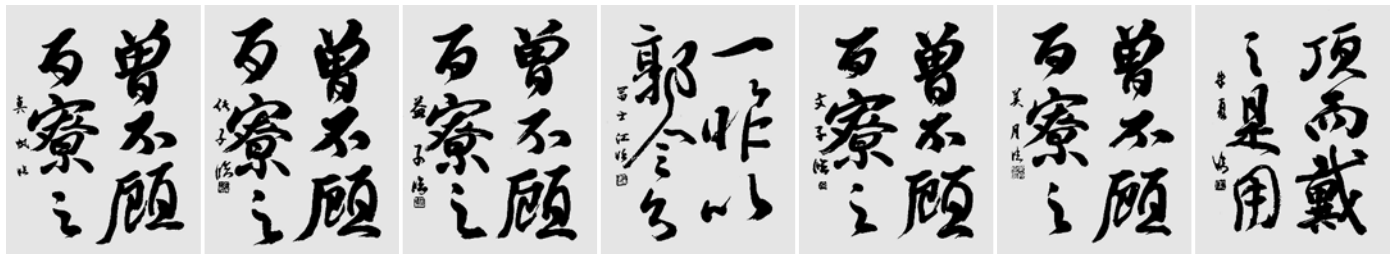 曾不顧
百寮之
真帆臨
曾不顧
百寮之
曾不顧
百寮之
益子臨
一〻昨以
郭令公
冨士江臨
曾不顧
百寮之
文子臨
曾不顧
百寮之
美月臨
頂而戴
之是用
朱夏臨